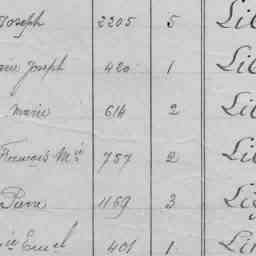 Joseph 2205 5 Lil
Joseph 420 1 Lil
Marie 614 2 Lil
François Mie 757 2 Lil
Pierre 1169 3 Li
401 1 Lin